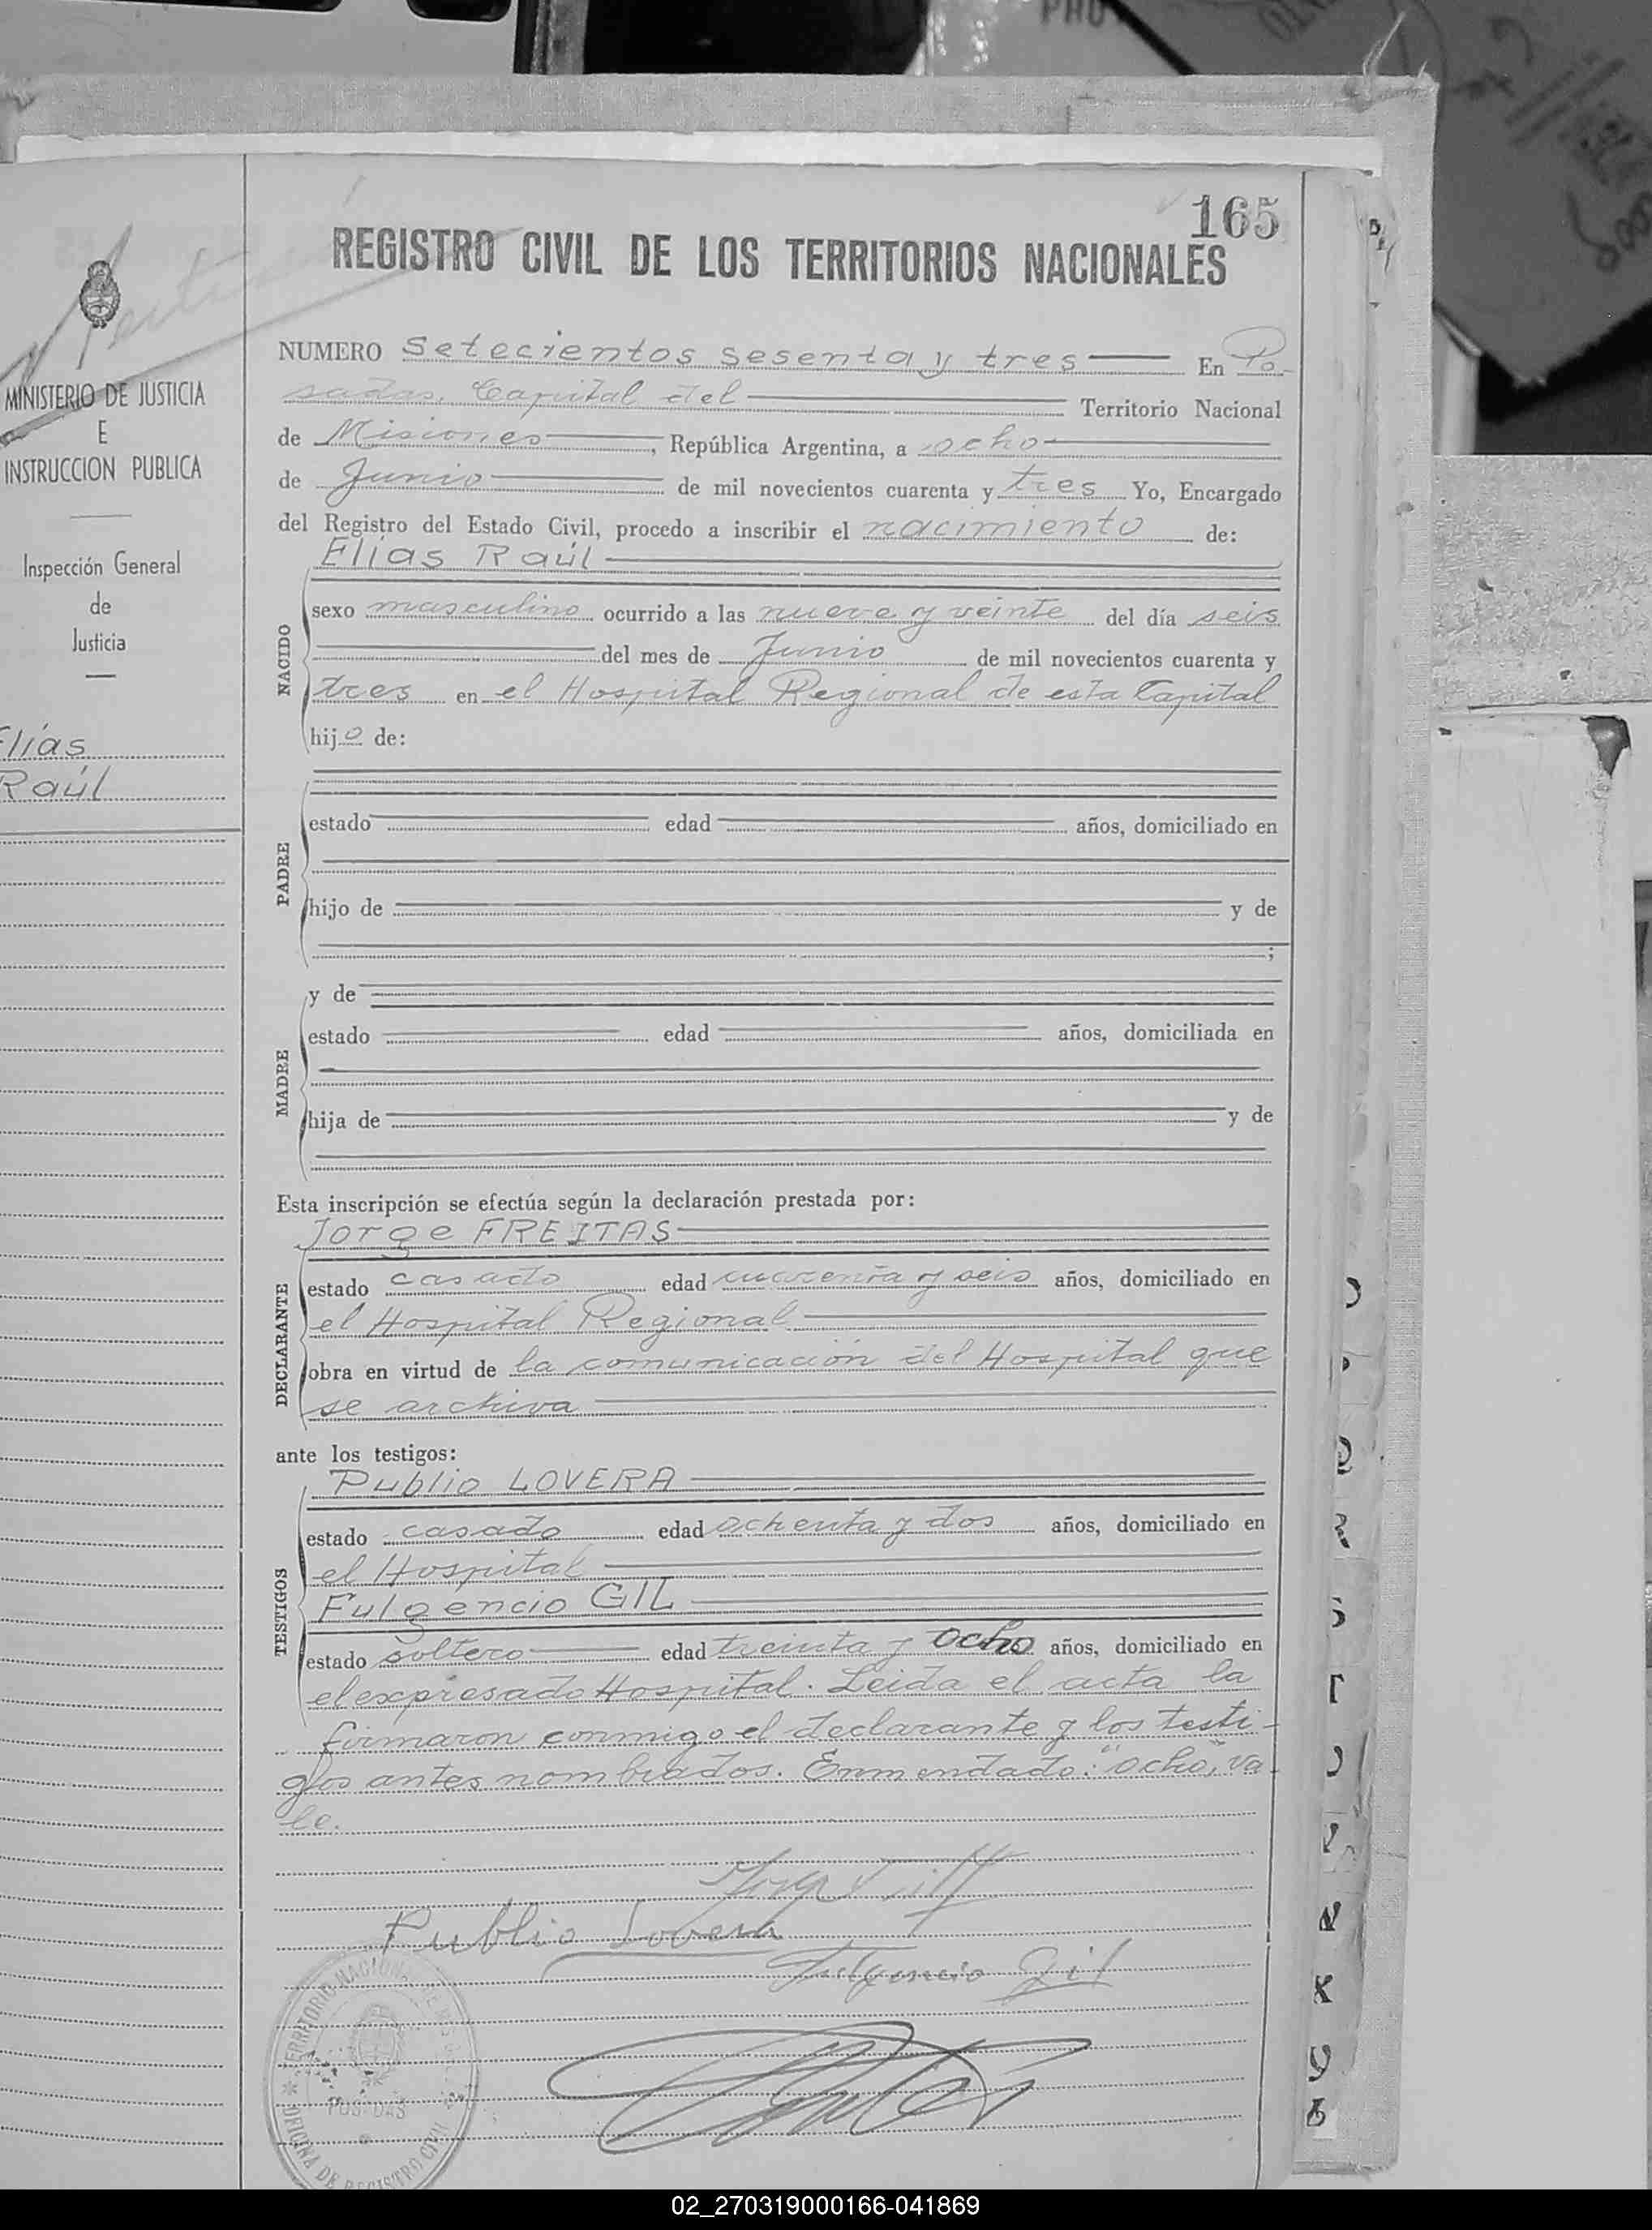 165
REGISTRO CIVIL DE LOS TERRITORIOS NACIONALES
MINISTERIO DE JUSTICIA
E
INSTRUCCION PUBLICA
Inspección General
de
Justicia
Elías
Raúl
NUMERO Setecientos sesenta y tres En Po-
sadas, Capital del Territorio Nacional
de Misiones, República Argentina, a ocho
de Junio de mil novecientos cuarenta y tres Yo, Encargado
del Registro del Estado Civil, procedo a inscribir el nacimiento de:
Elías Raúl
NACIDO
sexo masculino ocurrido a las nueve y veinte del día seis
del mes de Junio de mil novecientos cuarenta y
tres en el Hospital Regional de esta Capital
hijo de:
PADRE
estado edad años, domiciliado en
hijo de y de
;
MADRE
y de
estado edad años, domiciliada en
hija de y de
Esta inscripción se efectúa según la declaración prestada por:
Jorge FREITAS
DECLARANTE
estado casado edad cuarenta y seis años, domiciliado en
el Hospital Regional
obra en virtud de la comunicación del Hospital que
se archiva
ante los testigos:
Publio LOVERA
TESTIGOS
estado casado edad ochenta y dos años, domiciliado en
el Hospital
Fulgencio GIL
estado soltero edad treinta y ocho años, domiciliado en
el expresado Hospital. Leida el acta la
firmaron conmigo el declarante y los testi-
gos antes nombrados. Enmendado: "ocho", va-
le.
Publio Lovera
Fulgencio Gil
TERRITORIO NACIONAL DE MISIONES
POSADAS
OFICINA DE REGISTRO CIVIL
02_270319000166-041869